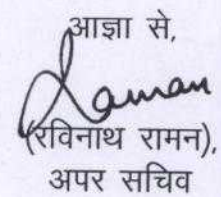 आज्ञा से,
Raman
(रविनाथ रामन),
अपर सचिव